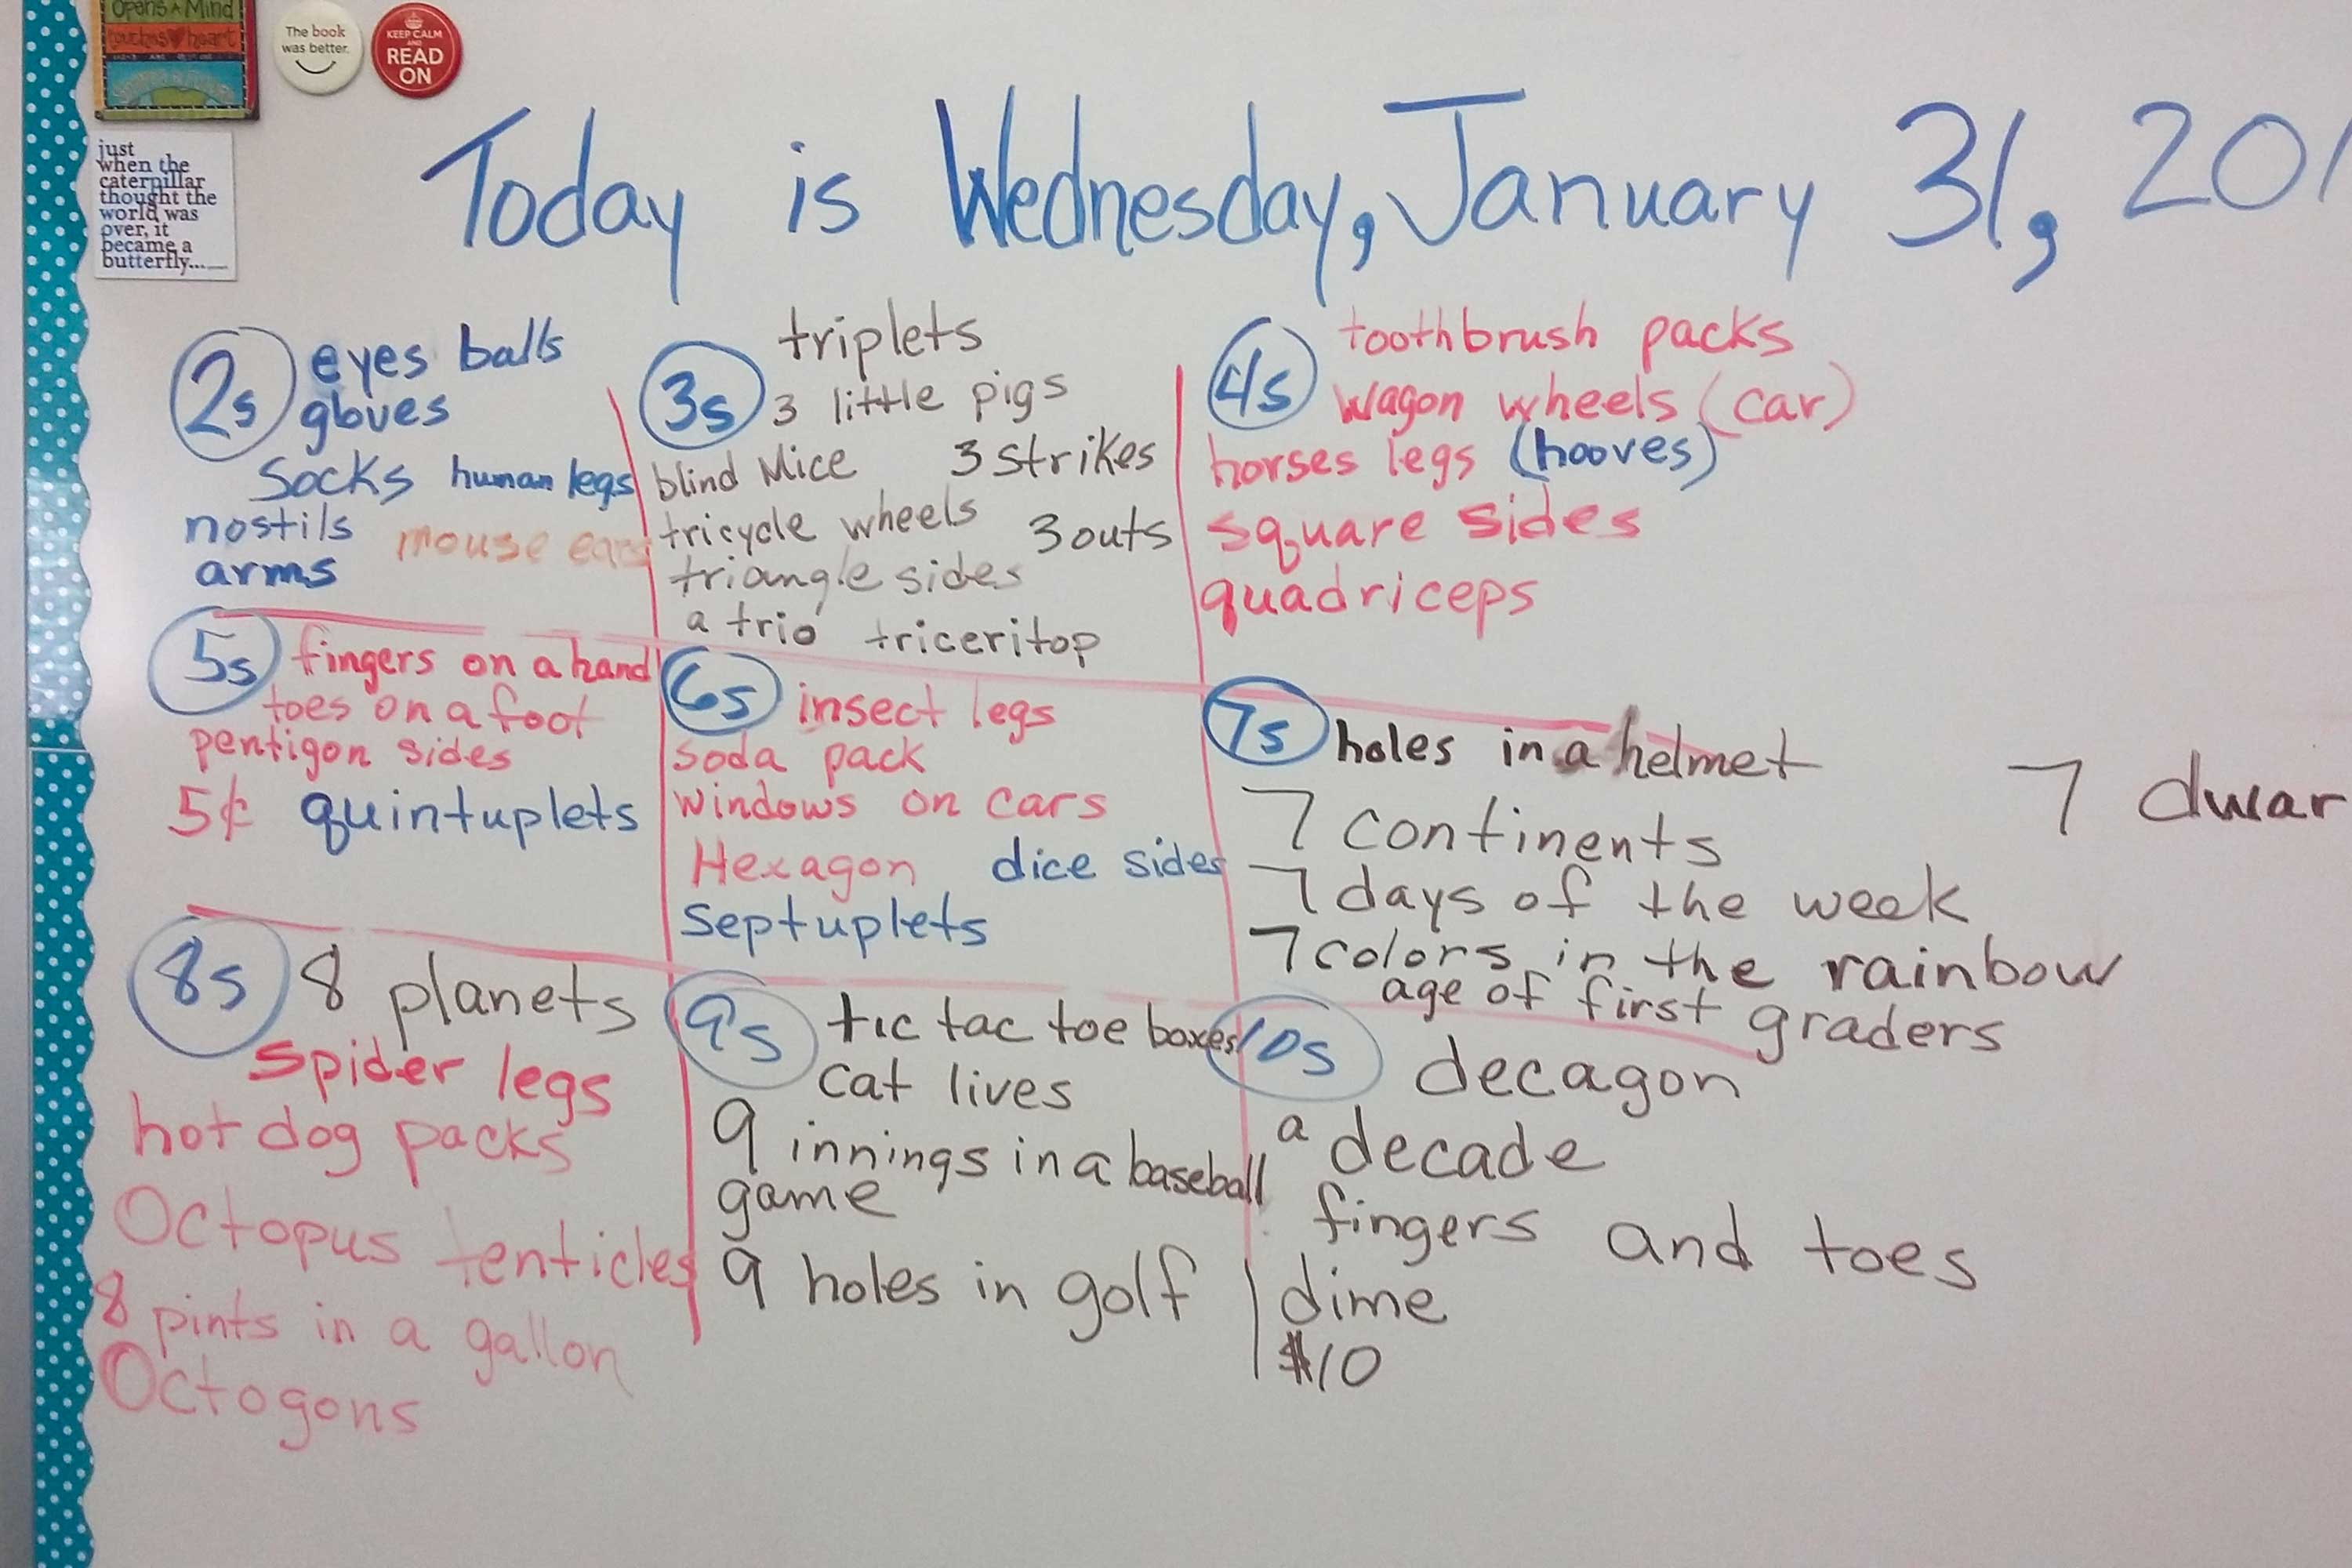 opens A Mind
touches heart
The book
was better.
KEEP CALM
AND
READ
ON
just
when the
caterpillar
thought the
world was
over, it
became a
butterfly...
Today is Wednesday, January 31, 201
2s eyes balls
gloves
Socks human legs
nostils mouse ears
arms
3s triplets
3 little pigs
blind Mice 3 strikes
tricycle wheels 3 outs
triangle sides
a trio triceritop
4s toothbrush packs
wagon wheels (car)
horses legs (hooves)
square sides
quadriceps
5s fingers on a hand
toes on a foot
pentigon sides
5¢ quintuplets
6s insect legs
soda pack
windows on cars
Hexagon dice sides
septuplets
7s holes in a helmet
7 dwar
7 continents
7 days of the week
7 colors in the rainbow
age of first graders
8s 8 planets
spider legs
hot dog packs
Octopus tenticles
8 pints in a gallon
Octogons
9s tic tac toe boxes
cat lives
9 innings in a baseball
game
9 holes in golf
10s decagon
a decade
fingers and toes
dime
$10